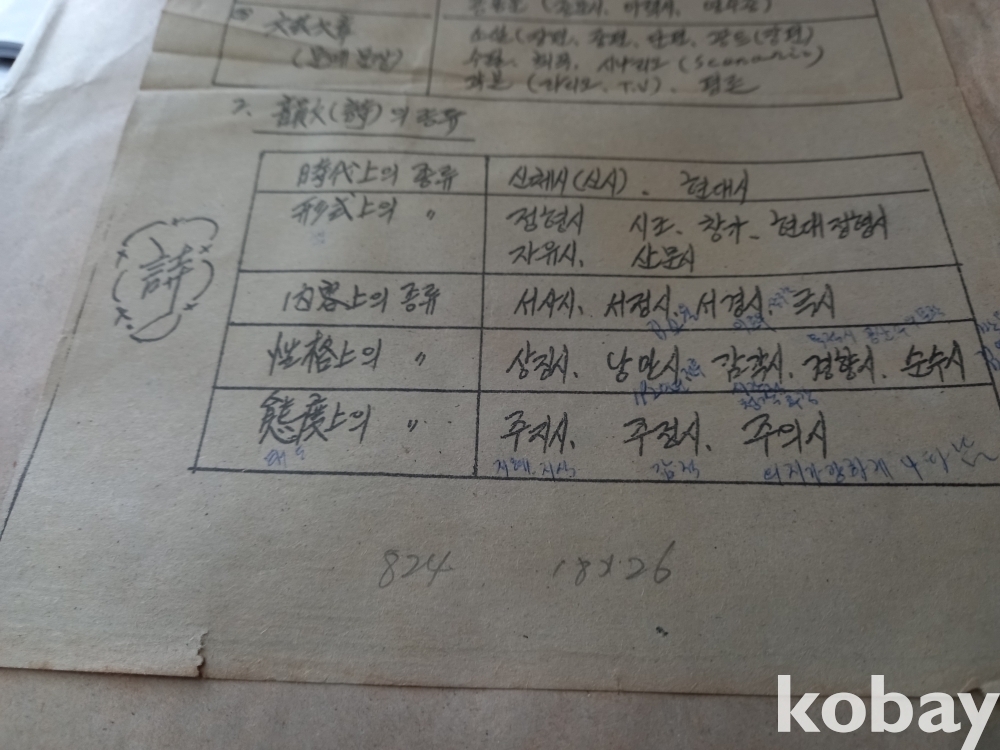 文藝文章 소설(장편, 중편, 단편, 콩트(장편)
(문예문장) 수필, 희곡, 시나리오(Scenario)
각본(라디오, T.V), 평론
7. 韻文(詩)의 종류
時代上의 종류 신체시(신시), 현대시
形式上의 〃 정형시 시조, 창가, 현대정형시
자유시, 산문시
詩
內容上의 종류 서사시, 서정시, 서경시, 극시
性格上의 〃 상징시, 낭만시, 감각시, 경향시, 순수시
態度上의 〃 주지시, 주정시, 주의시
태도 지혜, 지식 감정 의지가 강하게 나타남
824 18×26
kobay